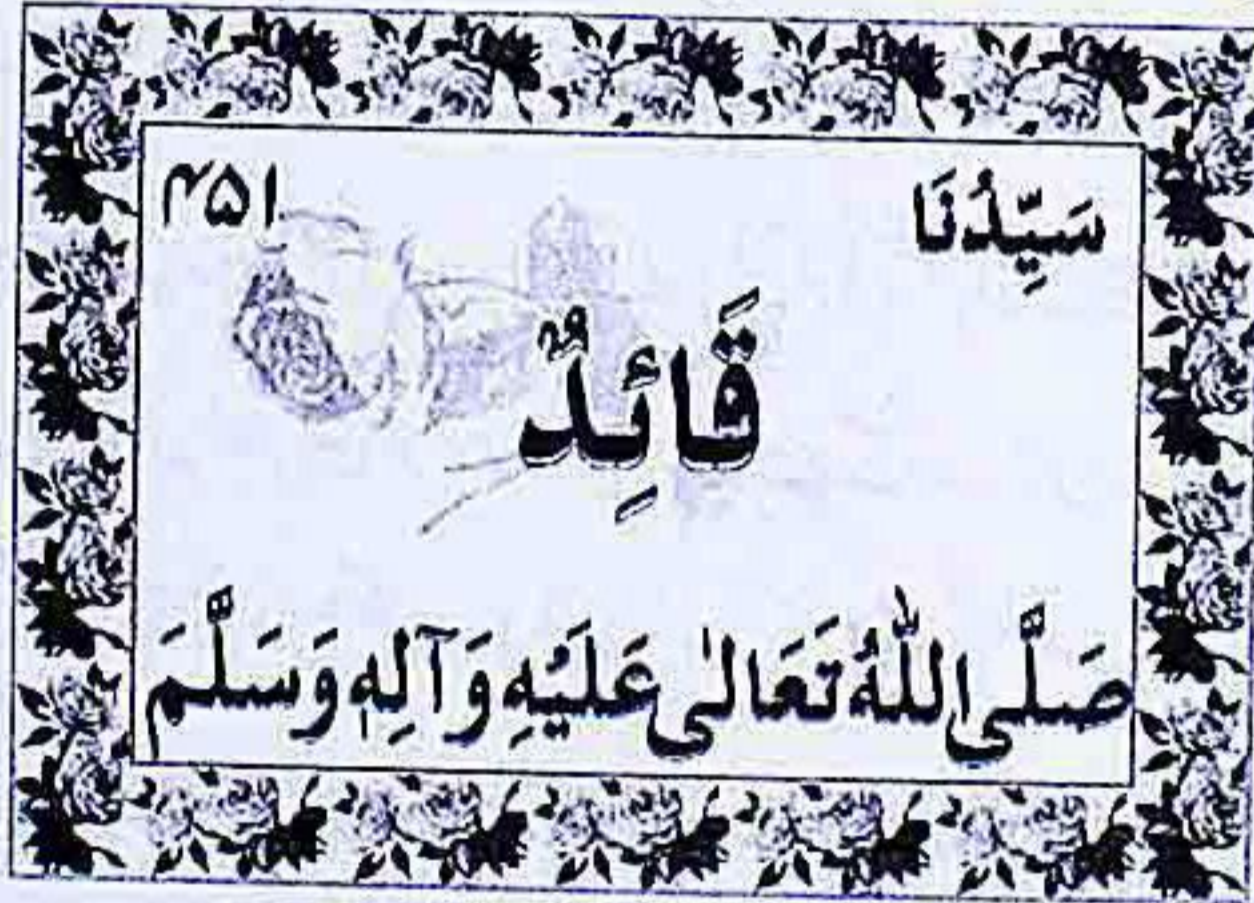 سَيِّدُنَا ۴۵۱
قَائِدٌ
صَلَّى اللّٰهُ تَعَالٰى عَلَيْهِ وَآلِهٖ وَسَلَّمَ